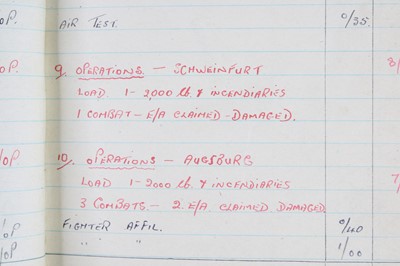 AIR TEST. 0/35.
OP. 9. OPERATIONS. — SCHWEINFURT
LOAD 1 - 2,000 lb. & INCENDIARIES
1 COMBAT - E/A CLAIMED - DAMAGED.
OP. 10/. OPERATIONS — AUGSBURG
LOAD 1 - 2000 lb. & INCENDIARIES
3 COMBATS. - 2 E/A CLAIMED DAMAGED
OP FIGHTER AFFIL. 0/40
OP " " 1/00